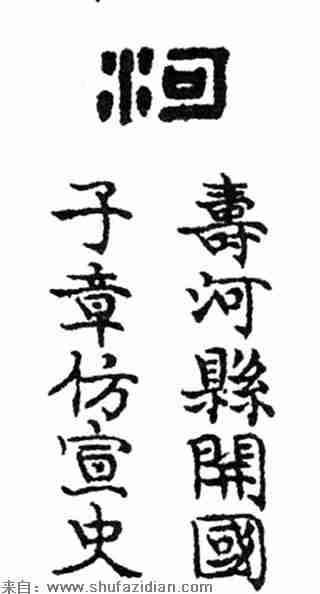 河
壽河縣開國
子章仿宣史
来自：www.shufazidian.com